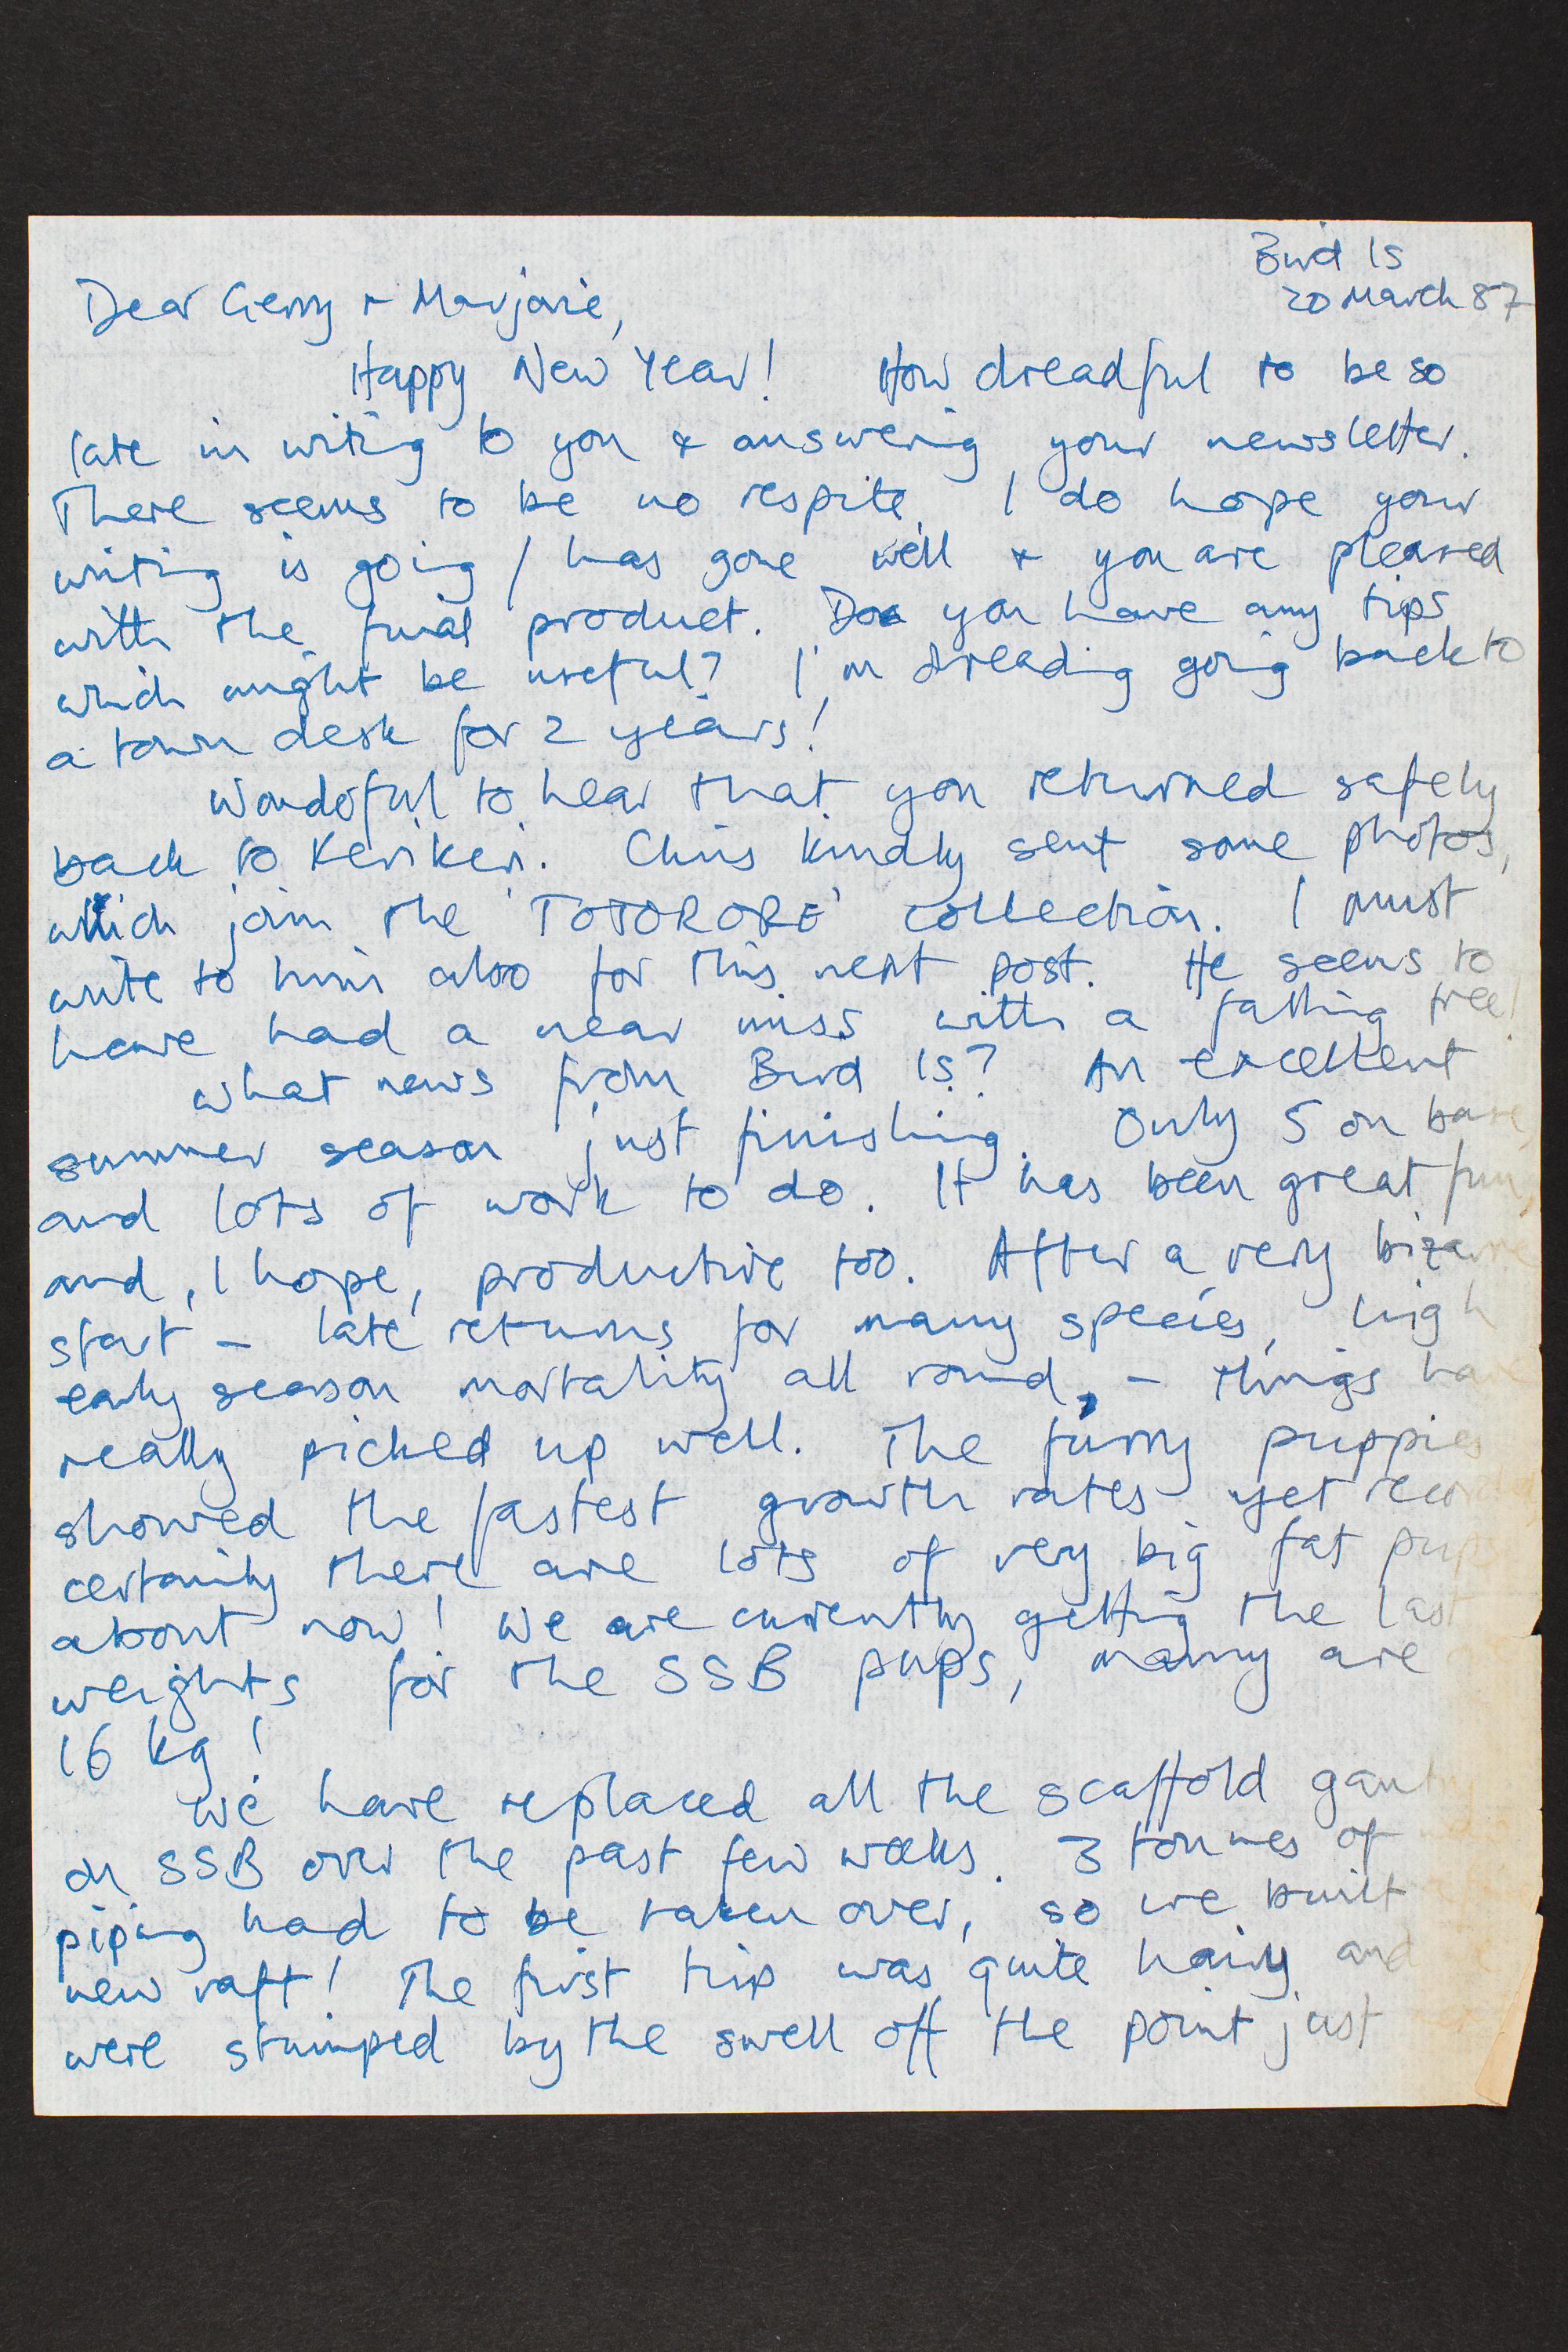 Bird Is
20 March 87
Dear Gerry & Marjorie,
Happy New Year! How dreadful to be so
late in writing to you & answering your newsletter.
There seems to be no respite. I do hope your
writing is going / has gone well & you are pleased
with the final product. Do you have any tips
which might be useful? I'm dreading going back to
a town desk for 2 years!
Wonderful to hear that you returned safely
back to Kerikeri. Chris kindly sent some photos,
which join the 'TOTORORE' collection. I must
write to him also for this next post. He seems to
have had a near miss with a falling tree!
What news from Bird Is? An excellent
summer season just finishing. Only 5 on base,
and lots of work to do. It has been great fun,
and, I hope, productive too. After a very bizarre
start - late returns for many species, high
early season mortality all round, - things have
really picked up well. The furry puppies
showed the fastest growth rates yet recorded,
certainly there are lots of very big fat pups
about now! We are currently getting the last
weights for the SSB pups, many are
16 kg!
We have replaced all the scaffold gantry
on SSB over the past few weeks. 3 tonnes of
piping had to be taken over, so we built
new raft! The first trip was quite hairy and
were stumped by the swell off the point just